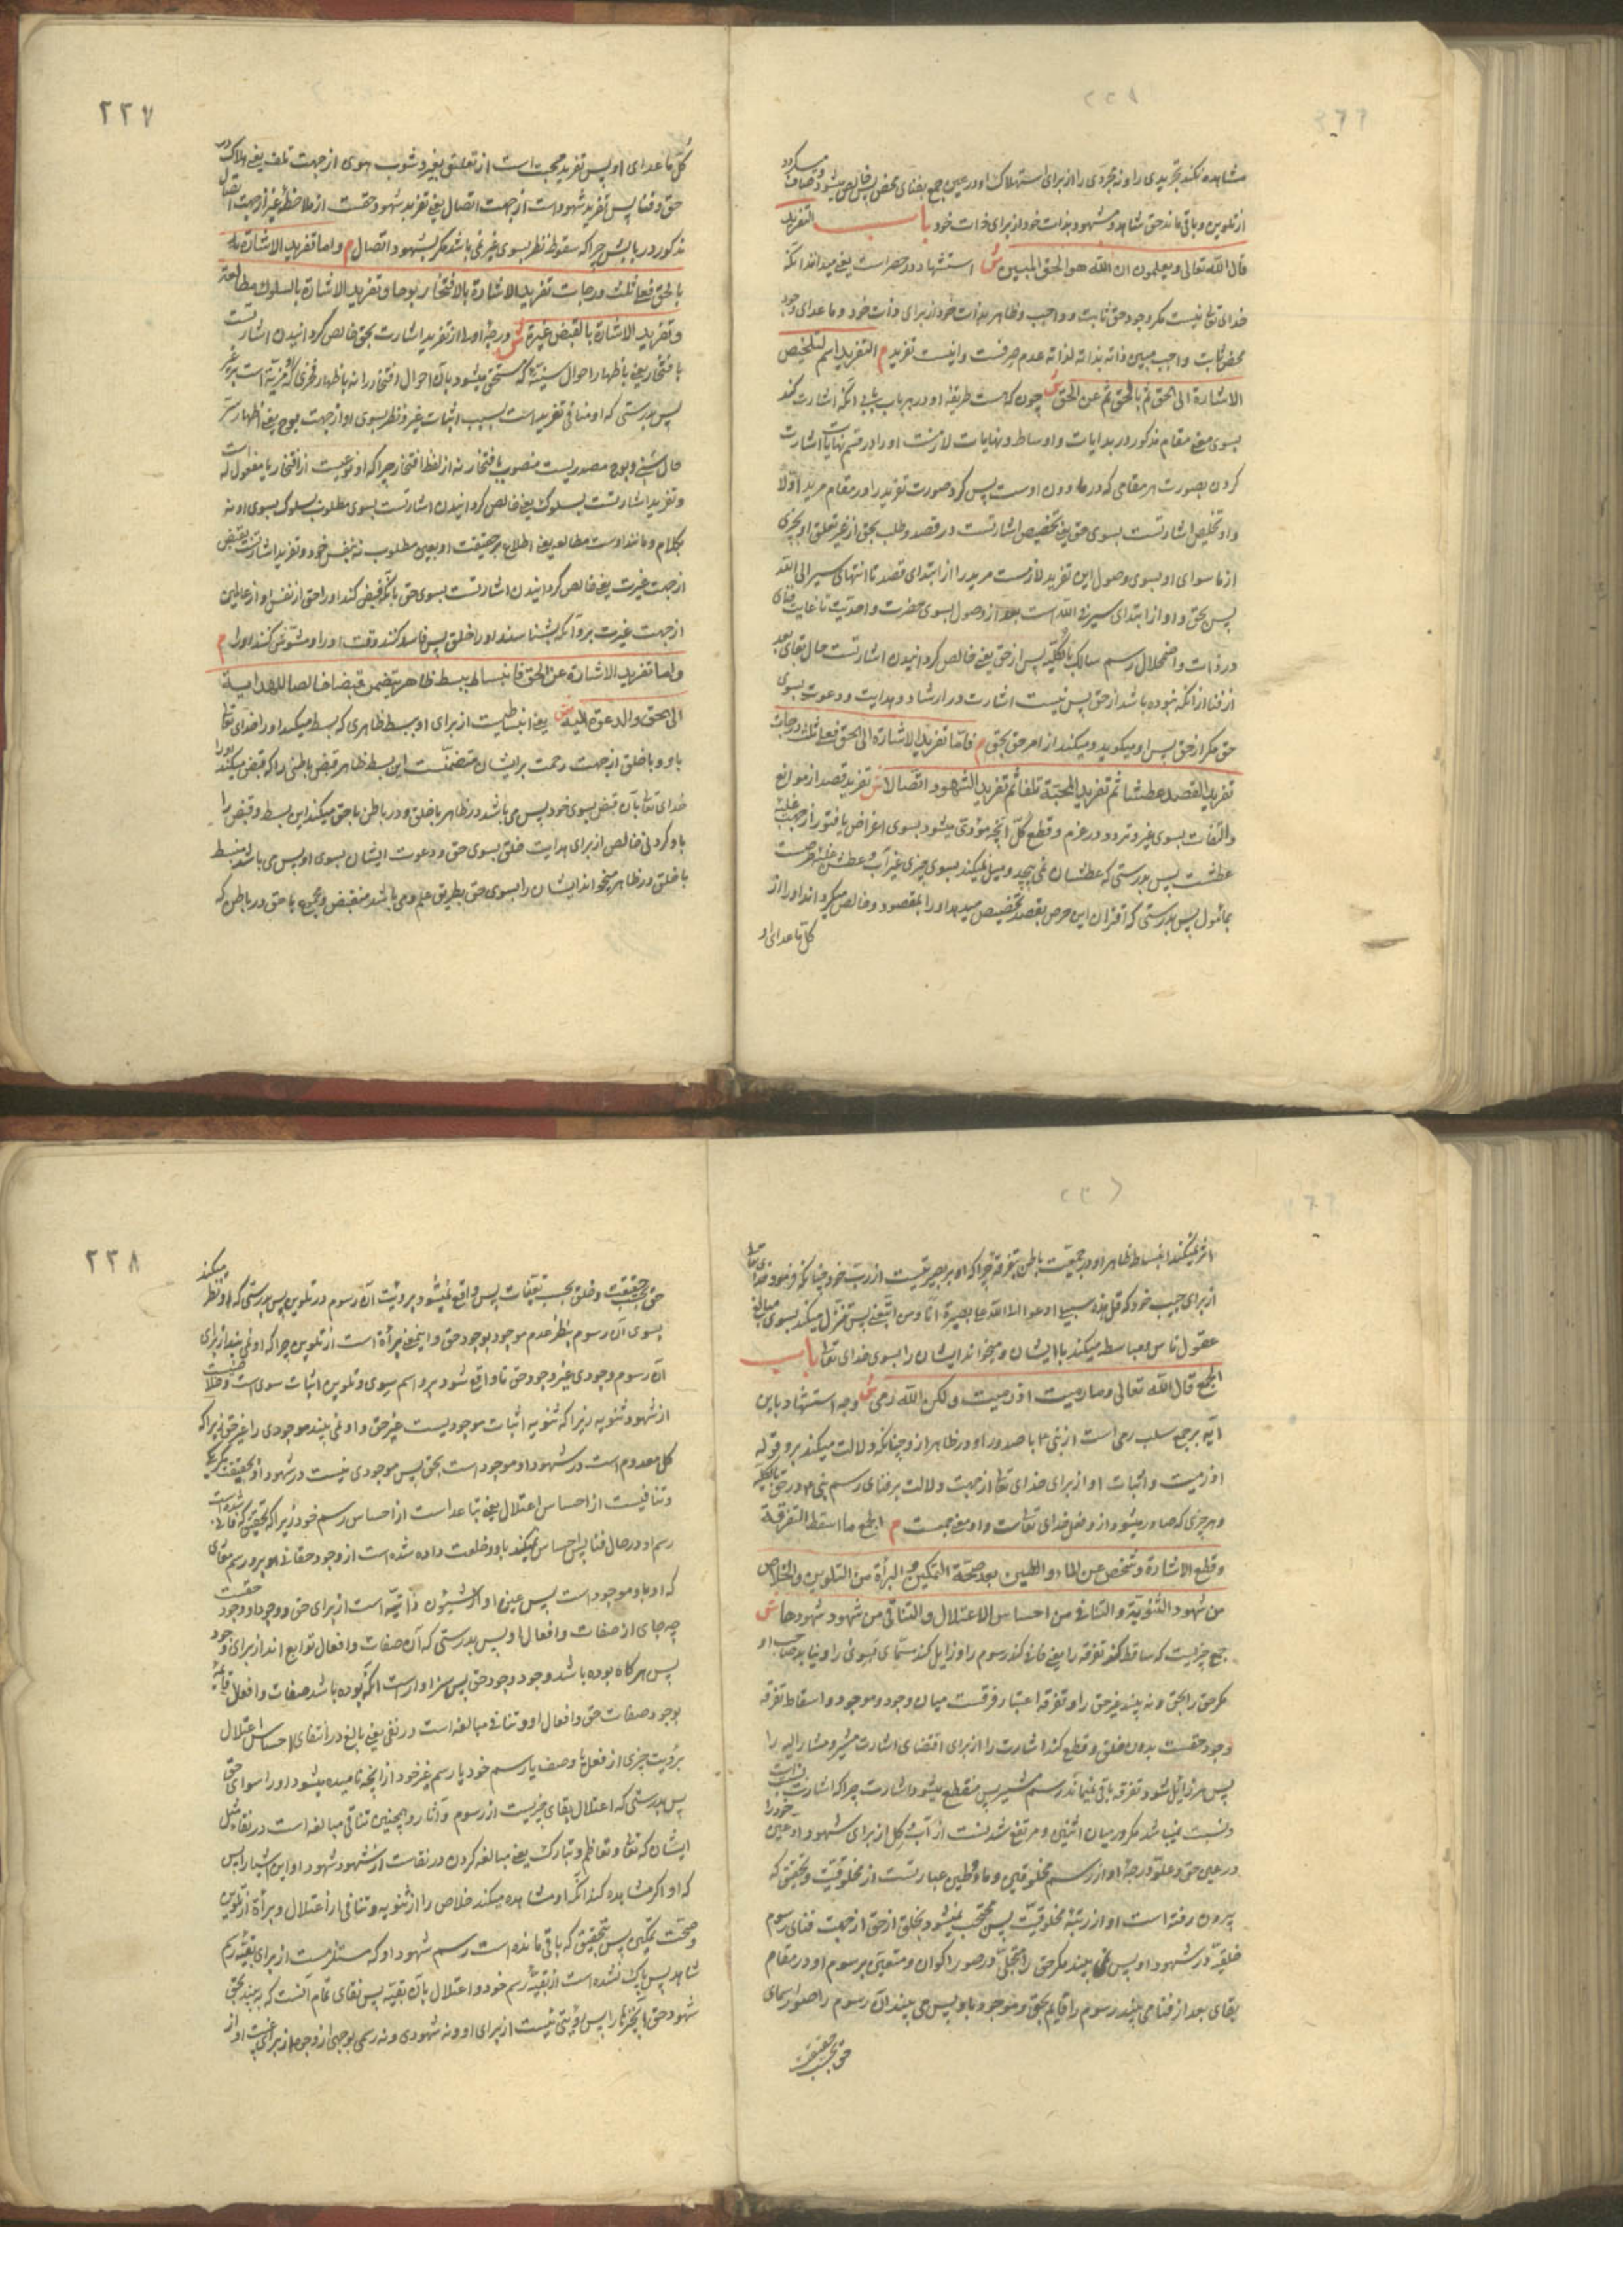 مشاهده نکند تجریدی را و نه مجردی را از برای استهلاک او در عین جمع بفنای محض پس خالص میشود و صاف میگردد
از تلوین و باقی ماند حق شاهد و مشهود بذات خود از برای ذات خود باب التفرید
قال الله تعالی و یعلمون ان الله هو الحق المبین ش استشهاد در حصر است یعنی میدانند آنکه
خدای تعالی نیست مگر وجود حق ثابت و واجب و ظاهر بذات خود از برای ذات خود و ماعدای وجود
محض ثابت واجب مبین ذاته بذاته لذاته عدم صرفست و اینست تفرید م التفرید اسم لتخلیص
الاشارة الی الحق ثم بالحق ثم عن الحق ش چون که هست طریقه او در هر باب شیخ آنکه اشارت کند
بسوی معنی مقام مذکور در بدایات و اوساط و نهایات لازمست او را در قسم نهایات اشارت
کردن بصورت هر مقامی که در مادون اوست پس کرد صورت تفرید را در مقام مرید اولا
و او تخلیص اشارتست بسوی حق یعنی تخصیص اشارتست در قصد و طلب بحق از غیر تعلق او بچیزی
از ماسوای او بسوی وصول این تفرید لازمست مرید را از ابتدای قصد تا انتهای سیر الی الله
پس بحق و او از ابتدای سیر فی الله است بعد از وصول بسوی حضرت واحدیت تا غایت فنای
در ذات و اضمحلال رسم سالک بالکلیه پس از حق یعنی خالص گردانیدن اشارتست حال بقای بعد
از فنا از آنکه نبوده باشد از حق پس نیست اشارت در ارشاد و هدایت و دعوت بسوی
حق مگر از حق پس او میگوید و میکند از امر حق بحق م فاما تفرید الاشارة الی الحق فعلی ثلث درجات
تفرید القصد عطشا ثم تفرید المحبة تلفا ثم تفرید الشهود اتصالا ش تفرید قصد از موانع
و التفات بسوی غیر و تردد در عزم و قطع کل آنچه مؤدی میشود بسوی اعراض یا فتور از جهت غلبه
عطشت پس بدرستی که عطشان نمی پیچد و میل نمیکند بسوی چیزی غیر آب و عطش غلبه حرصت
بمأمول پس بدرستی که اقتران این حرص بقصد تخصیص میدهد او را بمقصود و خالص میگرداند او را از
کل ماعدای او
۲۲۷
کل ماعدای او پس تفرید محبت است از تعلق بغیر و شوب هوی از جهت تلف یعنی هلاک در
حق و فنا پس تفرید شهود است از جهت اتصال یعنی تفرید شهود حقست از ملاحظه غیر از جهت اتصال
مذکور در بابش چرا که سقوط نظر بسوی غیر نمی باشد مگر بشهود اتصال م و اما تفرید الاشارة
بالحق فعلی ثلث درجات تفرید الاشارة بالافتخار بوحا و تفرید الاشارة بالسلوک مطالعة
و تفرید الاشارة بالقبض غیرة ش درجه اولا از تفرید اشارت بحق خالص گردانیدن اشارتست
بافتخار یعنی باظهار احوال سنیه که مستحق میشود بآن احوال افتخار را نه باظهار فخری که مزیة است بر غیر
پس بدرستی که او منافی تفرید است بسبب اثبات غیر و نظر بسوی او از جهت بوح یعنی اظهار ستر
حال و بوح مصدریست منصوب بافتخار نه از لفظ افتخار چرا که او نوعیست از افتخار یا مفعول له است
و تفرید اشارتست بسلوک یعنی خالص گردانیدن اشارتست بسوی مطلوب بسلوک بسوی او نه
بکلام و مانند اوست مطالعه یعنی اطلاع بر حقیقت او بعین مطلوب نه بنفس خود و تفرید اشارتست بقبض
از جهت غیرت یعنی خالص گردانیدن اشارتست بسوی حق بآنکه قبض کند او را حق از نفس او از عالمین
از جهت غیرت بر او آنکه بشناسند او را خلق پس فاسد کنند وقت او را و مشوش کنند او را م
و اما تفرید الاشارة عن الحق فانبساط ببسط ظاهر یتضمن قبضا خالصا للهدایة
الی الحق و الدعوة الیه ش یعنی انبساطیست از برای او ببسط ظاهری که بسط میکند او را خدای تعالی
باو و با خلق از جهت رحمت برایشان متضمنست این بسط ظاهر قبض باطنی را که قبض میکند او را
خدای تعالی بآن قبض بسوی خود پس می باشد در ظاهر با خلق و در باطن با حق میکند این بسط و قبض را
باو کردنی خالص از برای هدایت خلق بسوی حق و دعوت ایشان بسوی او پس می باشد منبسط
با خلق در ظاهر میخواند ایشان را بسوی حق بطریق علم و می باشد منقبض و مجموع با حق در باطن که
اثر نمیکند انبساط ظاهر او در جمعیت باطن بتفرقه چرا که او بر بصیرتست از رب خود چنانکه فرمود خدای تعالی
از برای حبیب خود که قل هذه سبیلی ادعوا الی الله علی بصیرة انا و من اتبعنی پس تنزل میکند بسوی مبالغ
عقول ناس و مباسطه میکند با ایشان و میخواند ایشان را بسوی خدای تعالی باب
الجمع قال الله تعالی و ما رمیت اذ رمیت و لکن الله رمی ش وجه استشهاد باین
آیه بر جمع سلب رمی است از نبی ۴ با صدور او در ظاهر از او چنانکه دلالت میکند بر او قوله
اذ رمیت و اثبات او از برای خدای تعالی از جهت دلالت بر فنای رسم نبی ۴ در حق بالکلیه
و هر چیزی که صادر میشود از او فعل خدای تعالی است و او معنی جمعست م الجمع ما اسقط التفرقة
و قطع الاشارة و شخص عن الماء و الطین بعد صحة التمکین و البرأة من التلوین و الخلاص
من شهود الثنویة و التنافی من احساس الاعتلال و التنافی من شهود شهودها ش
جمع چیزیست که ساقط کند تفرقه را یعنی فانی کند رسوم را و زایل کند سمای سوی را و نیابد صاحب او
مگر حق را بحق و نه بیند غیر حق را و تفرقه اعتبار فرقست میان وجود و موجود و اسقاط تفرقه
وجود حقست بدون خلق و قطع کند اشارت را از برای اقتضای اشارت مشیر و مشار الیه را
پس هر زایل شود تفرقه باقی نمیماند رسم مشیر پس منقطع میشود اشارت چرا که اشارت نسبت است
و نسبت نمیباشد مگر در میان اثنین و مرتفع شد نسبت از آب و گل از برای شهود او عین خود را
در عین حق و علو درجه او از رسم مخلوقین و ماء و طین عبارتست از مخلوقیت و تحقیق که
بیرون رفته است او از رتبه مخلوقیت پس محتجب نمیشود بخلق از حق از جهت فنای رسوم
خلقیه در شهود او پس نمی بیند مگر حق را متجلی در صور اکوان و متعین برسوم او در مقام
بقای بعد از فنا می بیند رسوم را قایم بحق و موجود باو پس می بیند آن رسوم را صور اسمای
حق بحسب حقیقت
۲۲۸
حق بحسب حقیقت و خلق بحسب تعینات پس واقع نمیشود برؤیت آن رسوم در تلوین پس بدرستی که او نظر میکند
بسوی آن رسوم بنظر عدم موجود بوجود حق و اینمعنی برأة است از تلوین چرا که او نمی بیند از برای
آن رسوم وجودی غیر وجود حق تا واقع شود بر او اسم سوی و تلوین اثبات سوی است و خلاصست
از شهود ثنویه زیرا که ثنویه اثبات موجودیست غیر حق و او نمی بیند موجودی را غیر حق زیرا که
کل معدوم است در شهود او موجود است بحق پس موجودی نیست در شهود او بحقیقت مگر یکی
و تنافیست از احساس اعتلال یعنی تباعد است از احساس رسم خود زیرا که بتحقیق که فانی شده است
رسم او در حال فنا پس احساس نمیکند باو و خلعت داده شده است از وجود حقانی او بر رسم بقای
که او باو موجود است پس عین او از شئون ذاتیه است از برای حق و وجود او وجود حقست
چه جای از صفات و افعال او پس بدرستی که آن صفات و افعال توابع اند از برای وجود
پس هرگاه بوده باشد وجود وجود حق پس سزاوار است آنکه بوده باشد صفات و افعال قائمه
بوجود صفات حق و افعال او و تنافی مبالغه است در نفی یعنی بالغ در انتفای احساس اعتلال
برؤیت چیزی از فعل یا وصف یا رسم خود یا رسم غیر خود از آنچه نامیده میشود او را سوای حق
پس بدرستی که اعتلال بقای چیزیست از رسوم و آثار و همچنین تنافی مبالغه است در نقا مثل
ایشان که تعالی و تعاظم و تبارک یعنی مبالغه کردن در نقاست از شهود شهود او این اشیا را پس
که او اگر مشاهده کند آنکه او مشاهده میکند خلاص را از ثنویه و تنافی از اعتلال و برأة از تلوین
و صحت تمکین پس بتحقیق که باقی مانده است رسم شهود او که مستلزمست از برای بقیه رسم
شاهد پس پاک نشده است از بقیه رسم خود و اعتلال بآن بقیه پس نقای تمام آنست که ببیند بحق
شهود حق